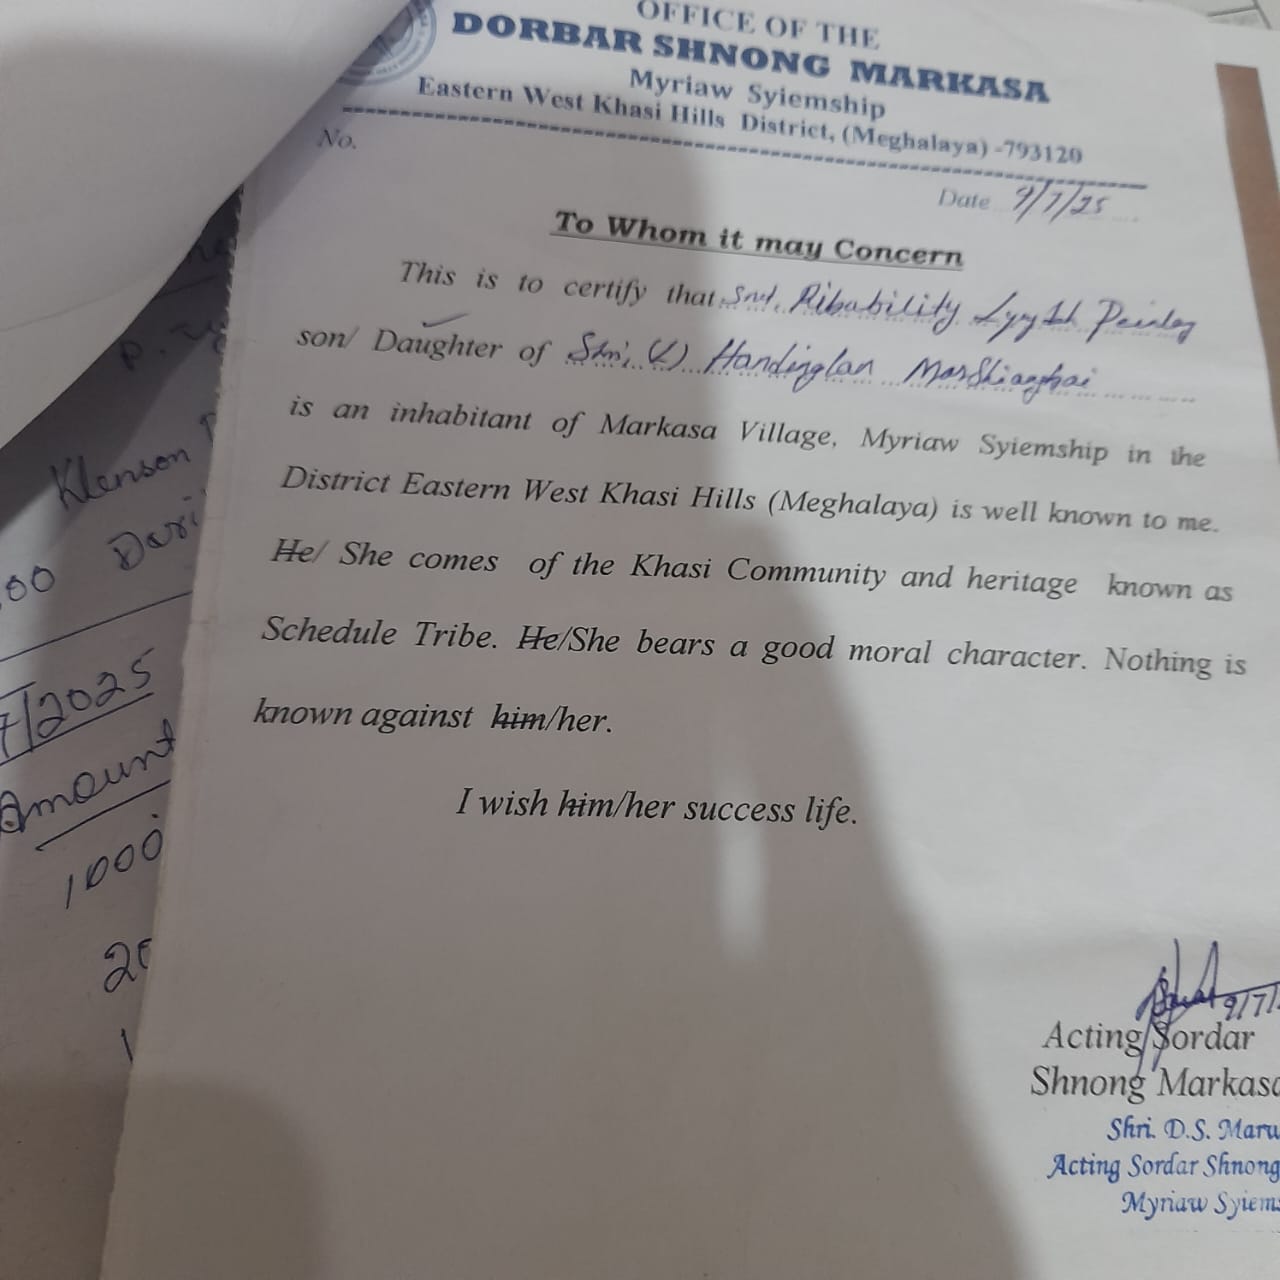 OFFICE OF THE
DORBAR SHNONG MARKASA
Myriaw Syiemship
Eastern West Khasi Hills District, (Meghalaya) -793120
No.
Date 9/7/25
To Whom it may Concern
This is to certify that Smt. Ribability Lyngkh
son/ Daughter of Shri, (L) Handinglan Marshianghai
is an inhabitant of Markasa Village, Myriaw Syiemship in the
District Eastern West Khasi Hills (Meghalaya) is well known to me.
He/ She comes of the Khasi Community and heritage known as
Schedule Tribe. He/She bears a good moral character. Nothing is
known against him/her.
I wish him/her success life.
9/7/
Acting Sordar
Shnong Markasa
Shri. D.S. Maru
Acting Sordar Shnong
Myriaw Syiems
Klenson
00 Dari
7/2025
Amount
1000
20
1